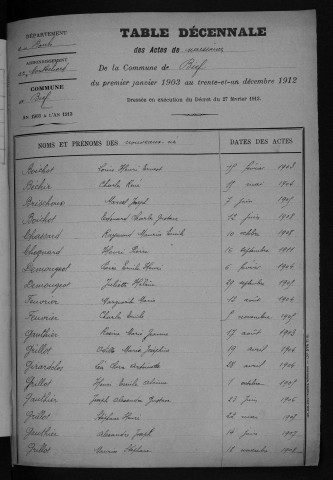 DÉPARTEMENT
du Doubs
ARRONDISSEMENT
de Montbéliard
COMMUNE
de Bief
DE 1903 A L'AN 1912
TABLE DÉCENNALE
des Actes de naissances
De la Commune de Bief
du premier janvier 1903 au trente-et-un décembre 1912
Dressée en exécution du Décret du 27 février 1913.
NOMS ET PRÉNOMS DES NOUVEAU-NÉ DATES DES ACTES
Bouchot Louis Henri février 1903
Béchir Charles René 19 mai 1904
Brischoux Marcel Joseph 7 juin 1905
Bouchot Edouard Charles Gustave 12 juin 1908
Chassard Raymond Maurice Emile 10 octobre 1908
Choquard Henri Pierre 14 septembre 1911
Demougeot Emile Henri 6 février 1904
Demougeot Juliette Hélène 29 septembre 1905
Feuvrier Marguerite Marie 12 août 1904
Feuvrier Charles Emile 5 novembre 1905
Gauthier Marie Jeanne 17 août 1903
Grillot Odette Marie Joséphine 19 avril 1904
Girardclos Léa 28 avril 1904
Grillot Henri Emile 1 octobre 1905
Gauthier Joseph Alexandre Gustave 23 juin 1906
Grillot Stéphane Henri 22 mai 1907
Gauthier Alexandre Joseph 14 juin 1907
Grillot Maurice Stéphane 18 novembre